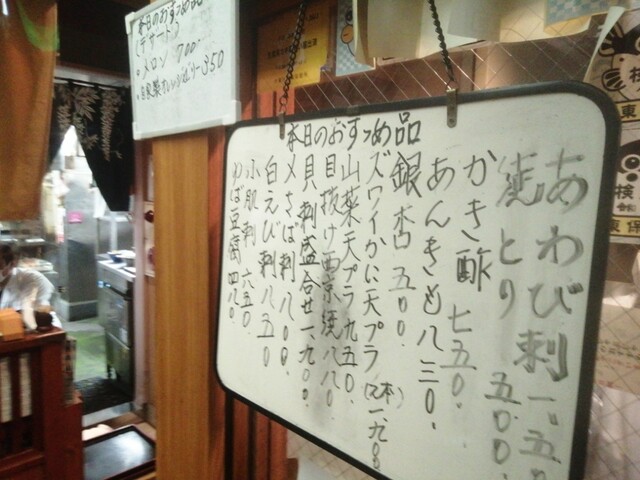 本日のおすすめ品
(デザート)
・メロン 700
・自家製オレンジゼリー 350
本日のおすすめ品
あわび刺 一、五
焼とり 五〇〇.
かき酢 七五〇.
あんきも 八三〇.
銀杏 五〇〇.
ズワイかに天プラ(2本) 一、九〇〇
山菜天プラ 九五〇
目抜け西京焼 八八〇
貝刺盛合せ 一、九〇〇.
〆さば刺 八〇〇.
白えび刺 八五〇
小肌刺 六五〇
ゆば豆腐 四八〇.
検
検
東
東保